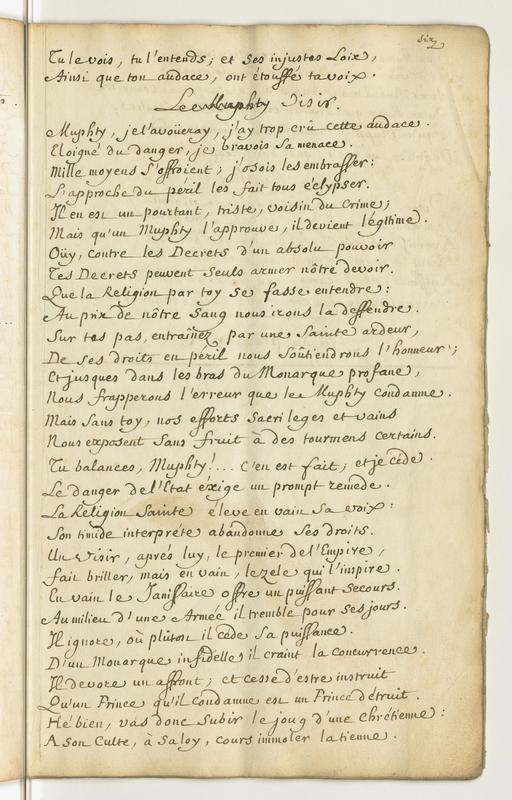 six
Tu le vois, tu l'entends; et ses injustes Loix,
Ainsi que ton audace, ont étouffé ta voix.
Le Visir.
Muphty, je l'avoüeray, j'ay trop crû cette audace.
Eloigné du danger, je bravois sa menace.
Mille moyens s'offroient; j'osois les embrasser:
L'approche du péril les fait tous éclypser.
Il en est un pourtant, triste, voisin du Crime;
Mais qu'un Muphty l'approuve, il devient légitime.
Oüy, contre les Decrets d'un absolu pouvoir
Tes Decrets peuvent seuls armer nôtre devoir.
Que la Religion par toy se fasse entendre:
Au prix de nôtre sang nous irons la deffendre.
Sur tes pas, entrainez par une Sainte ardeur,
De ses droits en péril nous soûtiendrons l'honneur;
Et jusques dans les bras du Monarque profane,
Nous frapperons l'erreur que le Muphty condamne.
Mais sans toy, nos efforts sacrileges et vains
Nous exposent sans fruit à des tourmens certains.
Tu balances, Muphty!... C'en est fait; et je céde.
Le danger de l'Etat éxige un prompt reméde.
La Religion Sainte éleve en vain sa voix:
Son timide interpréte abandonne ses droits.
Un Visir, aprés luy, le premier de l'Empire,
Fait briller, mais en vain, le zele qui l'inspire.
En vain le Janissaire offre un puissant secours.
Au milieu d'une Armée il tremble pour ses jours.
Il ignore, où plûtôt il céde sa puissance.
D'un Monarque infidelle il craint la concurrence.
Il devore un affront; et cesse d'estre instruit
Qu'un Prince qu'il condamne est un Prince détruit.
Hé bien, vas donc subir le joug d'une Chrétienne:
A son Culte, à sa Loy, cours immoler la tienne.